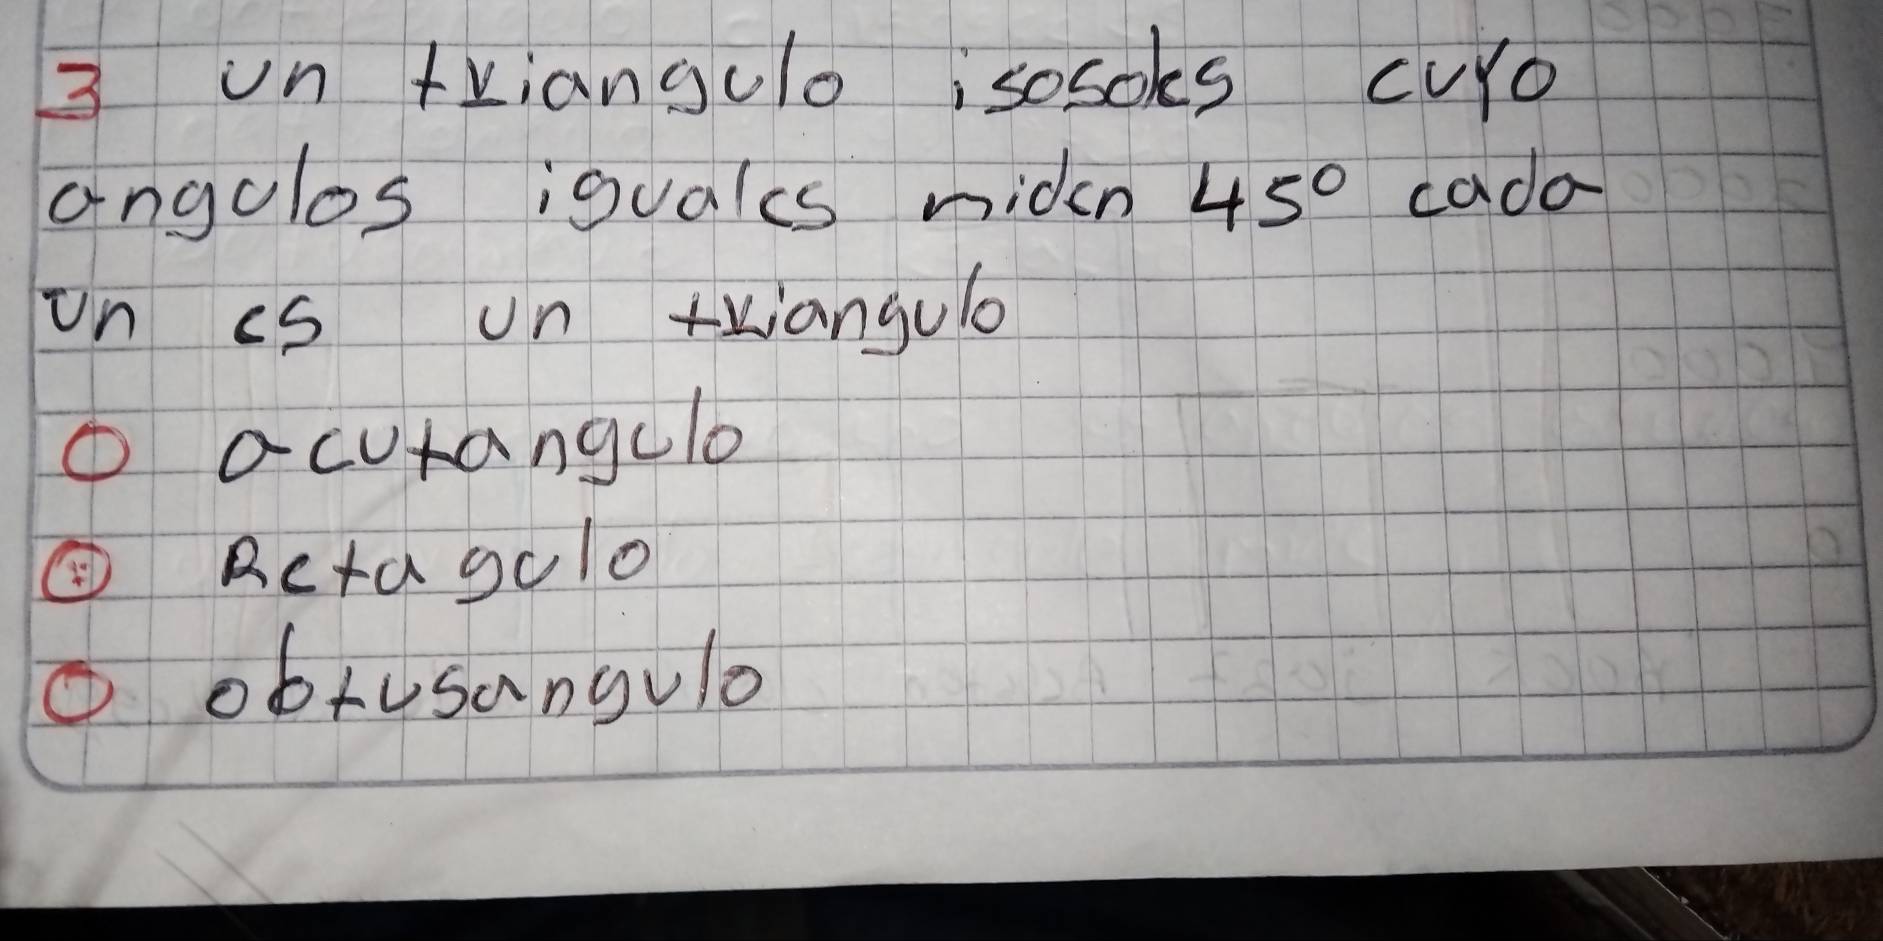 3 un triangulo isosoles cuyo
angulos iguales miden 45° cada
un es un triangulo
O acutangulo
O Retagulo
O obtusangulo